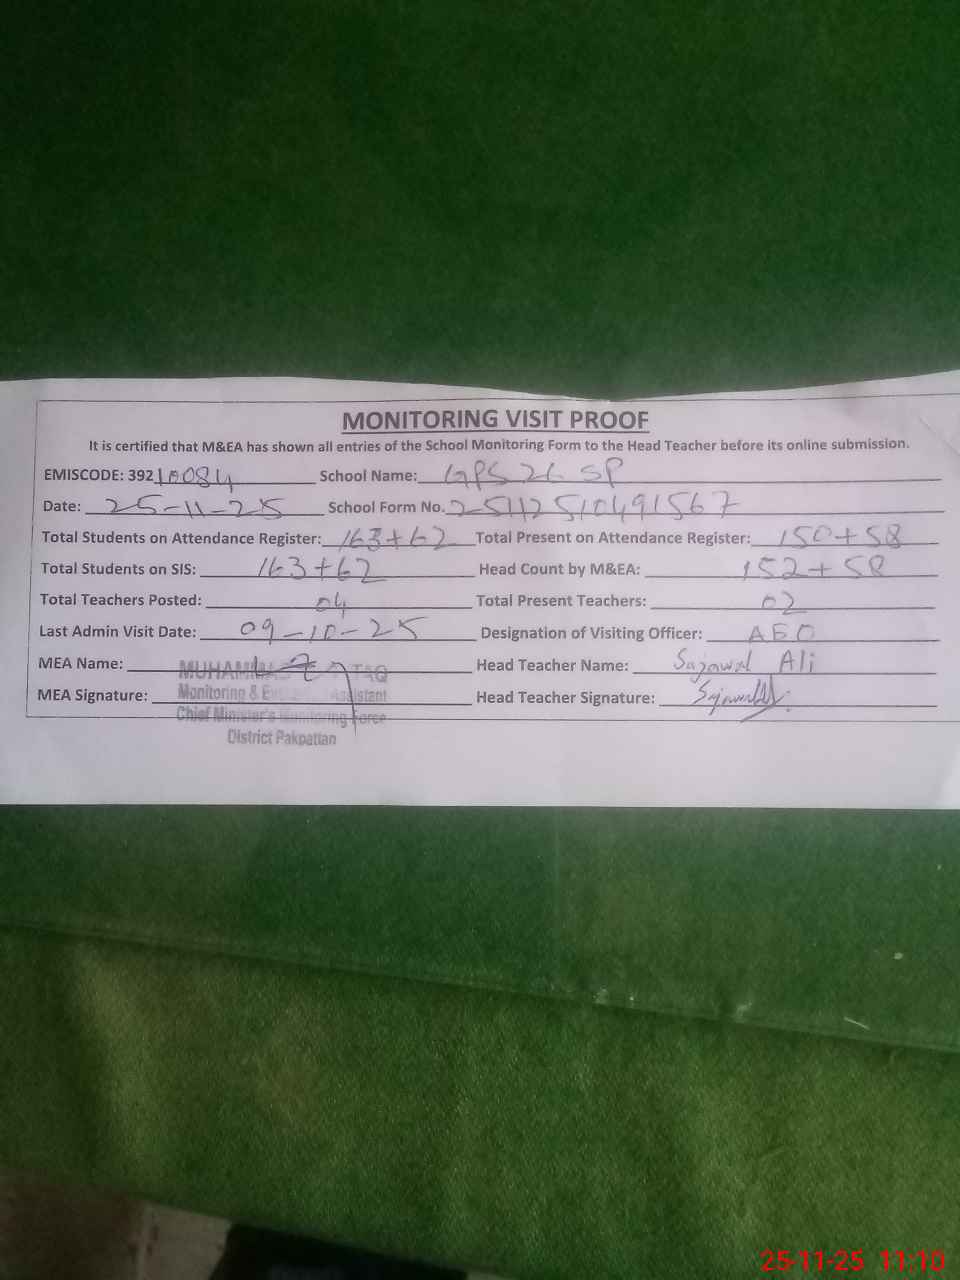 MONITORING VISIT PROOF
It is certified that M&EA has shown all entries of the School Monitoring Form to the Head Teacher before its online submission.
EMISCODE: 39210084 School Name: GPS 26 SP
Date: 25-11-25 School Form No. 25112510491567
Total Students on Attendance Register: 163+62 Total Present on Attendance Register: 150+58
Total Students on SIS: 163+62 Head Count by M&EA: 152+58
Total Teachers Posted: 04 Total Present Teachers: 02
Last Admin Visit Date: 09-10-25 Designation of Visiting Officer: AEO
MEA Name: Head Teacher Name: Sajawal Ali
MEA Signature: Monitoring & Assistant Head Teacher Signature:
Chief Minister's Monitoring Force
District Pakpattan
25-11-25 11:10